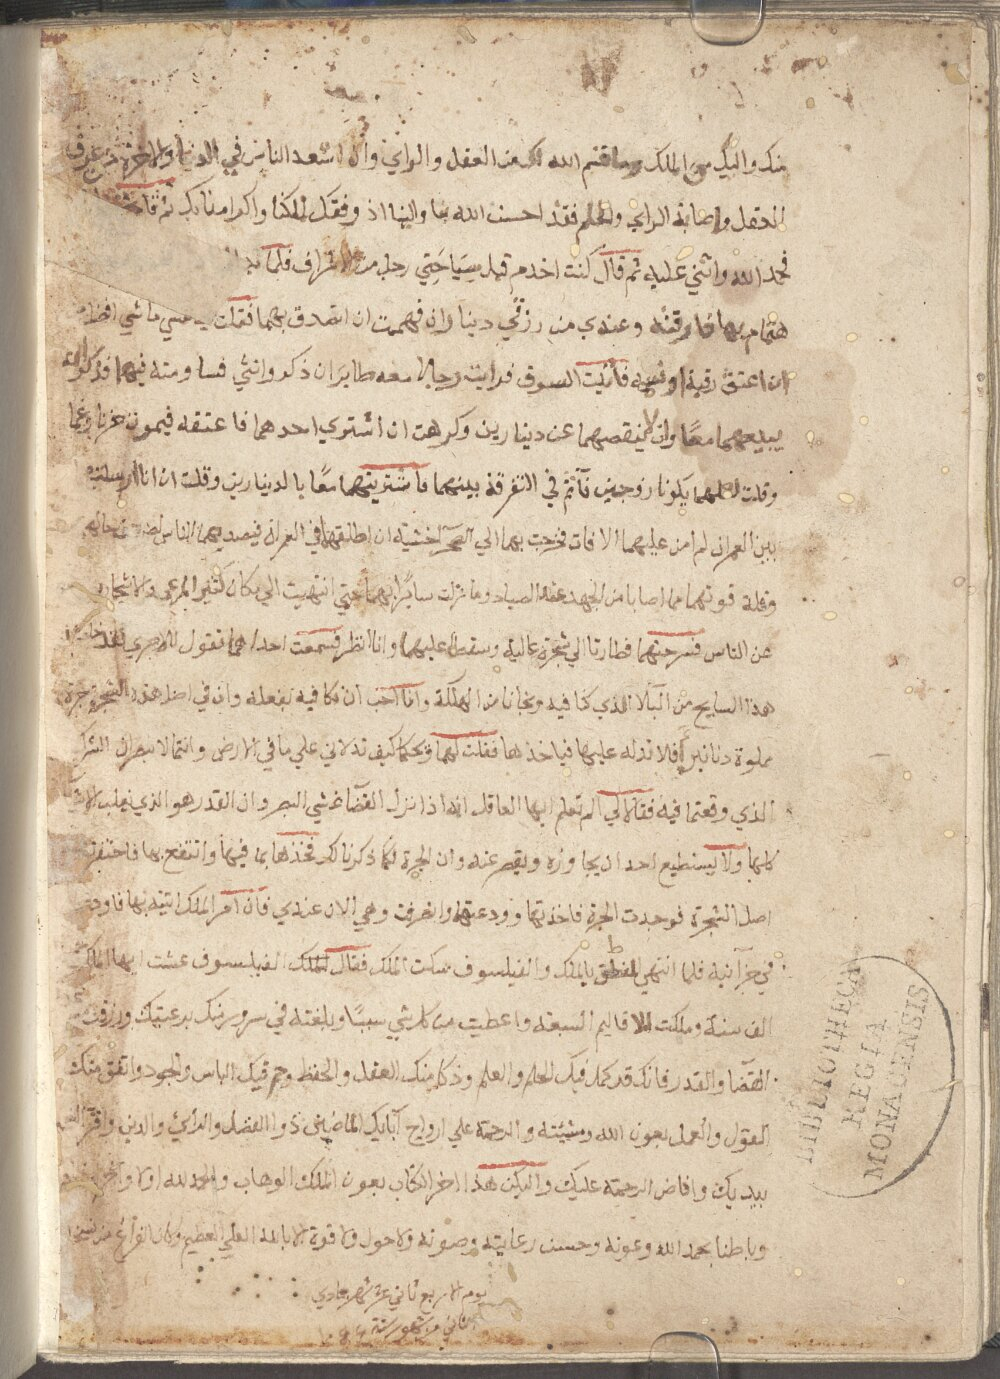 منك واليك من الملك وما قسم الله لك من العقل والراي وان اسعد الناس في الدنيا والاخرة من عرف
العقل واصابة الراي والحلم فقد احسن الله بنا والينا اذ وفقك لملكنا واكرامنا بك ثم قام
فحمد الله واثني عليه ثم قال كنت اخدم قبل سياحتي رجل من الاشراف فلما بدا
وعندي من رزقي ديناران فهممت ان اتصدق بهما فقلت ماشي افضل
ان اعتق رقبة او نسمه فأتيت السوق فرايت رجلا معه طايران ذكر وانثي فساومته فيهما فذكر
يبيعهما معًا وان لا ينقصهما عن دينارين وكرهت ان اشتري احدهما فاعتقه فيموت حزنا وغما
وقلت لعلهما يكونا زوجين فآثم في التفرقة بينهما فاشتريتهما معًا بالدينارين وقلت ان انا ارسلتهما
بين العمران لم امن عليهما الافات فخرجت بهما الي الصحرآ خشية ان اطلقهما في العمران فيصديهما الناس
وقلة قوتهما مما اصابا من الجهد عند الصياد وما زلت سايرًا بهما حتي انتهيت الي مكان كثير المرعي والاشجار
عن الناس فسرحتهما فطارتا الي شجرة عالية وسقطا عليها وانا انظر فسمعت احداهما تقول للاخري لقد
هذا السايح من البلا الذي كنا فيه ونجانا من الهلكة وانا احب ان نكافيه بفعله وان في اصل هذه الشجرة جرة
مملوة دنانير أفلا ندله عليها فياخذها فقلت لهما ويحكما كيف تدلاني علي ما في الارض وانتما لا تبصران الشرك
الذي وقعتما فيه فقالا لي الم تعلم ايها العاقل انه اذا نزل القضا غشي البصر وان القدر هو الذي يغلب الاشيا
كلها ولا يستطيع احد ان يجاوزه ويقصر عنه وان الجرة لكما ذكرنا لك فخذها بما فيها وانتفع بها فاحتفرت
اصل الشجرة فوجدت الجرة فاخذتها وودعتها وانصرفت وهي الان عندي فان امر الملك اتيته بها فاودعها
في خزآنيه فلما انتهي المنطق بالملك والفيلسوف سكت الملك فقال للملك الفيلسوف عشت ايها الملك
الف سنة وملكت الاقاليم السبعه واعطيت من كل شي سببًا وبلغته في سرور منك برعيتك ورزقت
القضا والقدر فانك قد كمل فيك الحلم والعلم وذكا منك العقل والحفظ وجم فيك الباس والجود واتفق منك
القول والعمل بعون الله ومشيته والرحمة علي ارواح آبايك الماضين ذوا الفضل والرأي والدين واقر
بيديك وافاض الرحمة عليك واليكن هذا اخر الكتاب بعون الملك الوهاب والحمد لله اولا وآخرا
وباطنا بحمد الله وعونه وحسن رعايته وصونه ولا حول ولا قوة الا بالله العلي العظيم وكان الفراغ من نسخه
يوم الاربع ثاني عشر شهر جمادي
الثاني من شهور سنة
BIBLIOTHECA
REGIA
MONACENSIS